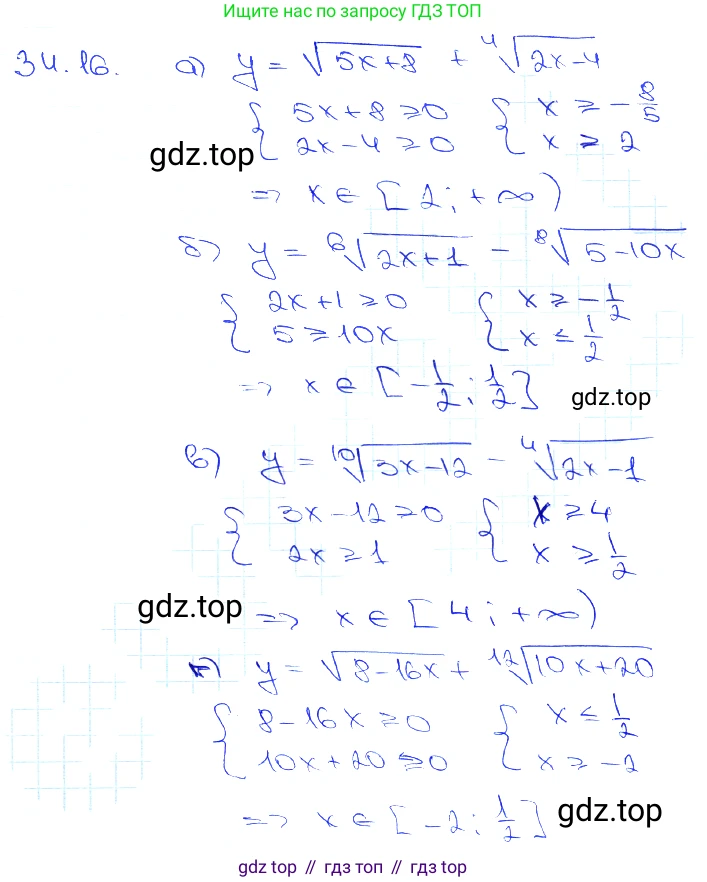 Ищите нас по запросу ГДЗ ТОП
34.16. а) y = √(5x+8) + ⁴√(2x-4)
{ 5x+8 ≥ 0 { x ≥ -8/5
{ 2x-4 ≥ 0 { x ≥ 2
gdz.top
=> x ∈ [2; +∞)
б) y = ⁶√(2x+1) - ⁸√(5-10x)
{ 2x+1 ≥ 0 { x ≥ -1/2
{ 5 ≥ 10x { x ≤ 1/2
=> x ∈ [-1/2; 1/2]
gdz.top
в) y = ¹⁰√(3x-12) - ⁴√(2x-1)
{ 3x-12 ≥ 0 { x ≥ 4
{ 2x ≥ 1 { x ≥ 1/2
gdz.top => x ∈ [4; +∞)
г) y = √(8-16x) + ¹²√(10x+20)
{ 8-16x ≥ 0 { x ≤ 1/2
{ 10x+20 ≥ 0 { x ≥ -2
=> x ∈ [-2; 1/2] gdz.top
gdz top // гдз топ // gdz.top